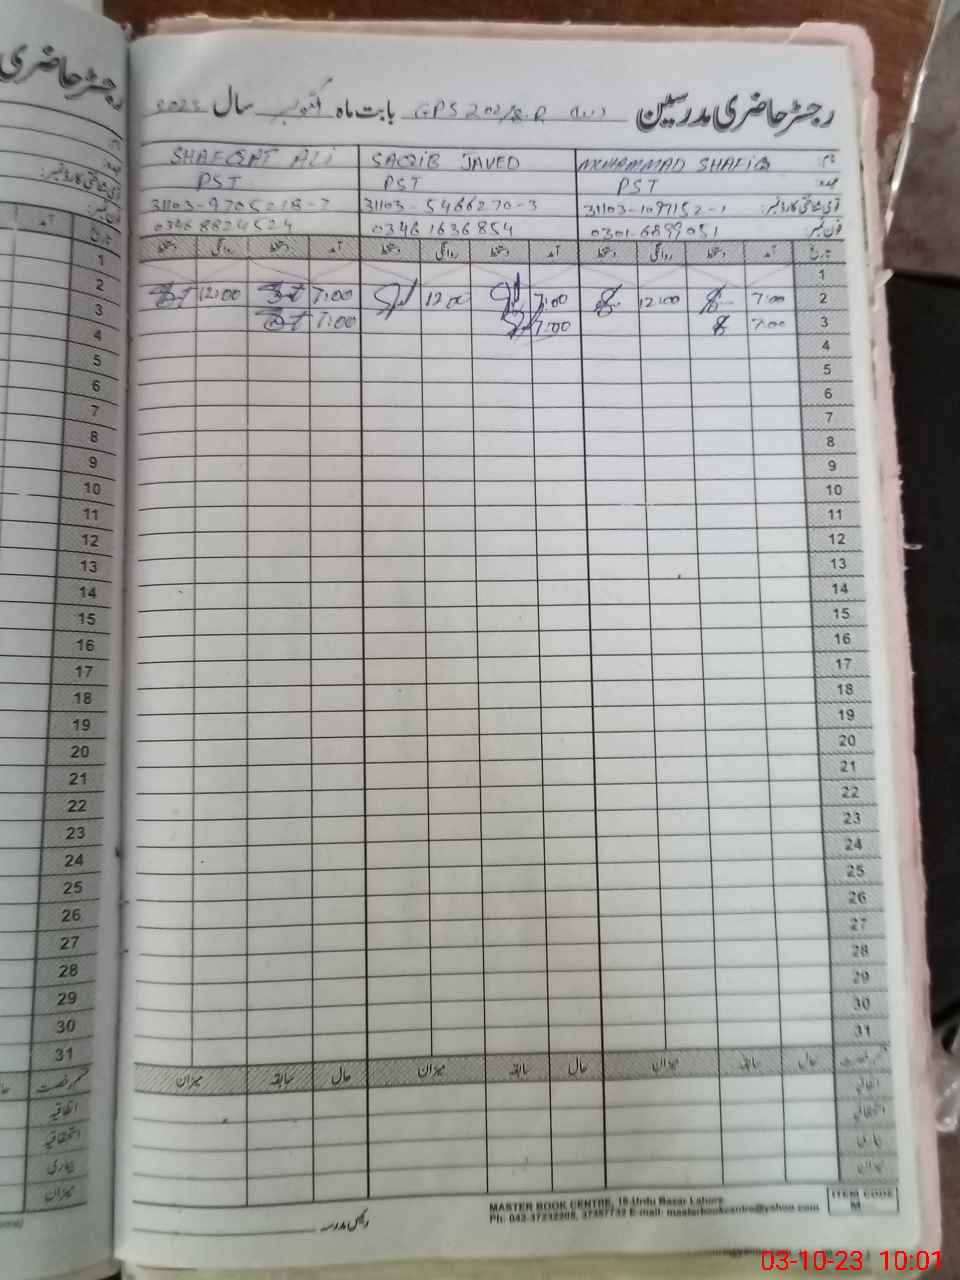 رجسٹر حاضری مدرسین GPS 202/8.R بابت ماہ اکتوبر سال 2023
نام: MUHAMMAD SHAFIQ SAQIB JAVED SHAFQAT ALI
عہدہ PST PST PST
قومی شناختی کارڈ نمبر: 31103-1097152-1 31103-5466270-3 31103-9705218-7
فون نمبر: 0301-6899051 0346 1636854 0346 8824524
تاریخ آمد دستخط روانگی دستخط آمد دستخط روانگی دستخط آمد دستخط روانگی دستخط
1
2 7:00 12:00 7:00 12:00 7:00 12:00
3 7:00 7:00 7:00
4
5
6
7
8
9
10
11
12
13
14
15
16
17
18
19
20
21
22
23
24
25
26
27
28
29
30
31
قسم رخصت حال سابقہ میزان حال سابقہ میزان حال سابقہ میزان
اتفاقیہ
استحقاقیہ
بیماری
میزان
رئیس مدرسہ
MASTER BOOK CENTRE, 16-Urdu Bazar Lahore.
Ph: 042-37232208, 37357732 E-mail: masterbookcentre@yahoo.com
ITEM CODE
M
رجسٹر حاضری
نام:
عہدہ
قومی شناختی کارڈ نمبر:
فون نمبر:
تاریخ آمد
1
2
3
4
5
6
7
8
9
10
11
12
13
14
15
16
17
18
19
20
21
22
23
24
25
26
27
28
29
30
31
قسم رخصت حال
اتفاقیہ
استحقاقیہ
بیماری
میزان
03-10-23 10:01